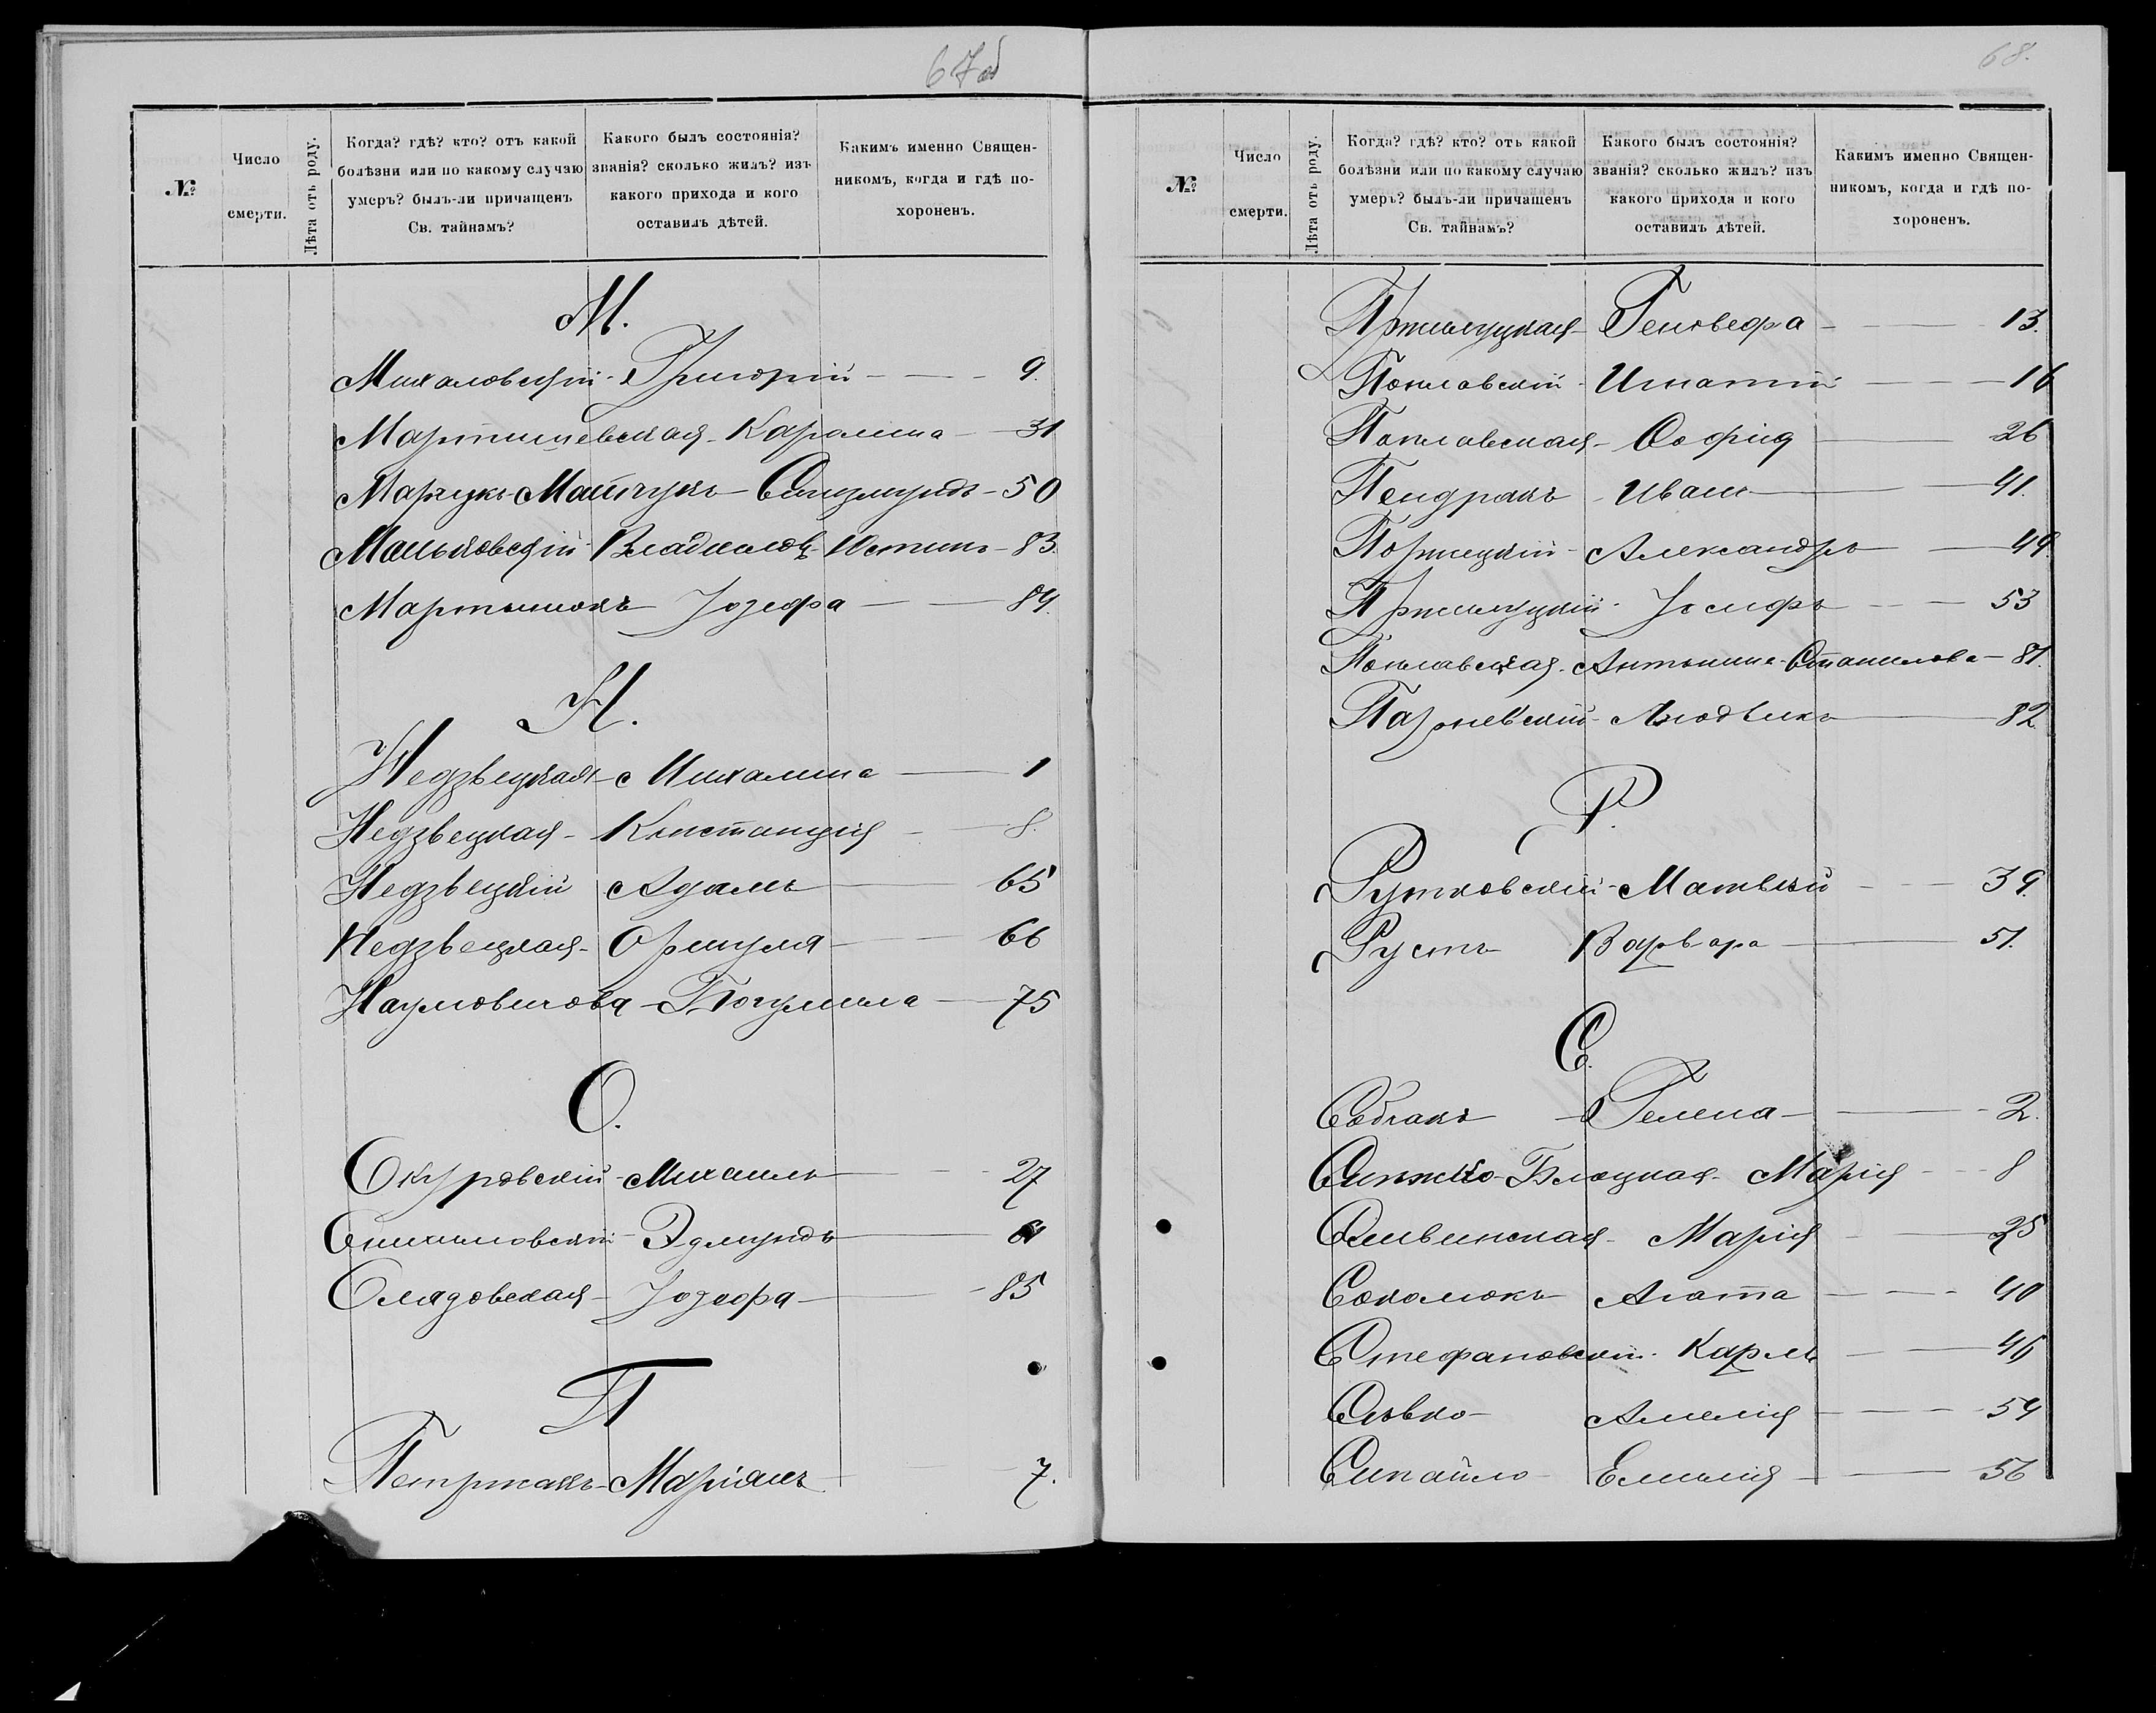 67об
№
Число смерти.
Лѣта отъ роду.
Когда? гдѣ? кто? отъ какой болѣзни или по какому случаю умеръ? былъ-ли причащенъ Св. тайнамъ?
Какого былъ состоянія? званія? сколько жилъ? изъ какого прихода и кого оставилъ дѣтей.
Какимъ именно Священникомъ, когда и гдѣ похороненъ.
М.
Михаловскій - Григорій - 9.
Каролина - 31
Марчукъ-Матчукъ - Сигизмундъ - 50
Маньковскій - Владиславъ Юстинъ - 83.
Мартынюкъ Іозефа - 84.
Н.
Недзвецкая - Михалина - 1
Недзвецкая - Констанція - 8.
Недзвецкій Адамъ - 65
Недзвецкая - Оршуля - 66
Наумовичова - Богумила - 75
О.
Окуровскій - Михаилъ - 27
Эдмундъ
Олядовская - Іозефа - 85
П
Петржакъ - Маріанъ 7.
68.
№
Число смерти.
Лѣта отъ роду.
Когда? гдѣ? кто? отъ какой болѣзни или по какому случаю умеръ? былъ-ли причащенъ Св. тайнамъ?
Какого былъ состоянія? званія? сколько жилъ? изъ какого прихода и кого оставилъ дѣтей.
Какимъ именно Священникомъ, когда и гдѣ похороненъ.
Геновефа - 13.
Поплавскій - Игнатій - 16
Поплавская - Софія 26
Пендракъ - Иванъ - 41.
Поржецкій - Александръ - 49.
Іосифъ - 53
Поплавская - Антонина-Станислава - 81.
Людвикъ - 82
Р.
Рутковскій - Матвѣй - 39.
Рустъ Варвара - 51.
С.
Собчакъ - Гелена - 2.
Марія - 8
Сливинская - Марія - 25
Соколюкъ Агата - 40
Стефановскій - Карлъ - 46
Амелія - 54
Сипайло - Емилія - 56